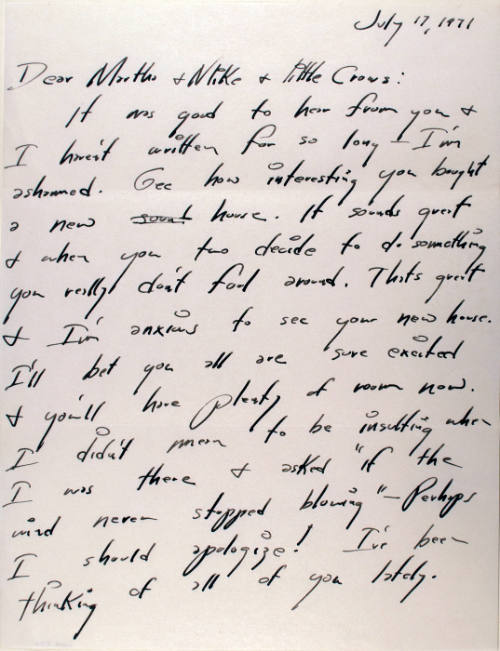 July 17, 1971
Dear Martha & Mike & little Crows:
It was good to hear from you &
I haven't written for so long – I'm
ashamed. Gee how interesting you bought
a new house. It sounds great
& when you two decide to do something
you really don't fool around. Thats great
& I'm anxious to see your new house.
I'll bet you all are sure excited
& you'll have plenty of room now.
I didn't mean to be insulting when
I was there & asked "if the
wind never stopped blowing" – Perhaps
I should apologize! I've been
thinking of all of you lately.